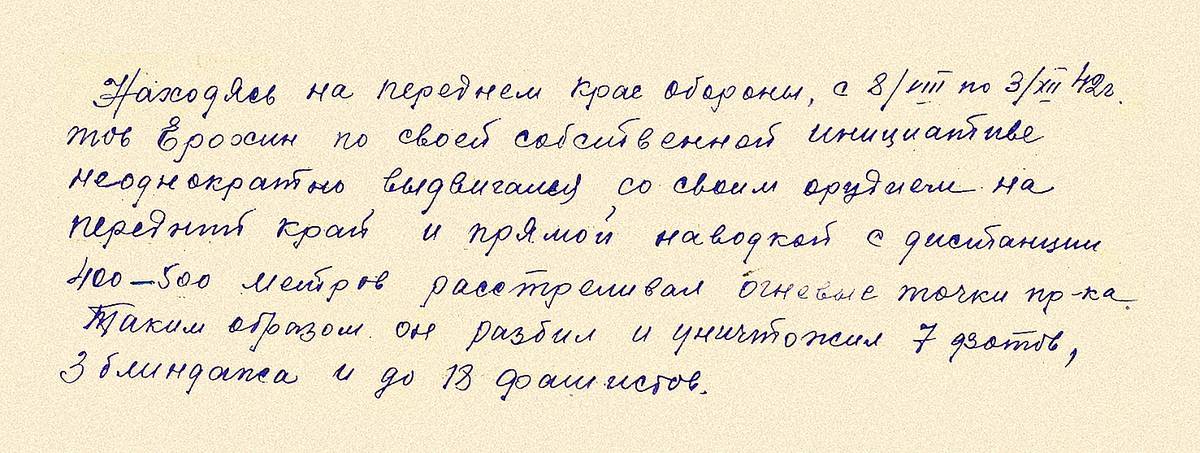 Находясь на переднем крае обороны, с 8/VIII по 3/XII 42г.
тов Ерохин по своей собственной инициативе
неоднократно выдвигался со своим орудием на
передний край и прямой наводкой с дистанции
400–500 метров расстреливал огневые точки пр-ка.
Таким образом он разбил и уничтожил 7 дзотов,
3 блиндажа и до 18 фашистов.